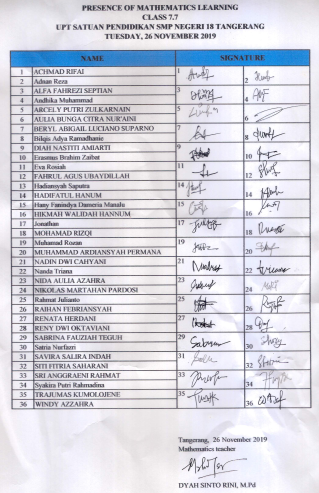 PRESENCE OF MATHEMATICS LEARNING
CLASS 7.7
UPT SATUAN PENDIDIKAN SMP NEGERI 18 TANGERANG
TUESDAY, 26 NOVEMBER 2019
NAME SIGNATURE
1 ACHMAD RIFAI 1
2 Adnan Reza 2
3 ALFA FAHREZI SEPTIAN 3
4 Andhika Muhammad 4
5 ARCELY PUTRI ZULKARNAIN 5
6 AULIA BUNGA CITRA NUR'AINI 6
7 BERYL ABIGAIL LUCIANO SUPARNO 7
8 Bilqis Adya Ramadhanie 8
9 DIAH NASTITI AMIARTI 9
10 Erasmus Brahim Zaibat 10
11 Eva Rosiah 11
12 FAHRUL AGUS UBAYDILLAH 12
13 Hadiansyah Saputra 13
14 HADIFATUL HANUM 14
15 Hany Fanindya Dameria Manalu 15
16 HIKMAH WALIDAH HANNUM 16
17 Jonathan 17
18 MOHAMAD RIZQI 18
19 Muhamad Rozan 19
20 MUHAMMAD ARDIANSYAH PERMANA 20
21 NADIN DWI CAHYANI 21
22 Nanda Triana 22
23 NIDA AULIA AZAHRA 23
24 NIKOLAS MARTAHAN PARDOSI 24
25 Rahmat Julianto 25
26 RAIHAN FEBRIANSYAH 26
27 RENATA HERDANI 27
28 RENY DWI OKTAVIANI 28
29 SABRINA FAUZIAH TEGUH 29
30 Satria Nurfazri 30
31 SAVIRA SALIRA INDAH 31
32 SITI FITRIA SAHARANI 32
33 SRI ANGGRAENI RAHMAT 33
34 Syakira Putri Rahmadina 34
35 TRAJUMAS KUMOLOJENE 35
36 WINDY AZZAHRA 36
Tangerang, 26 November 2019
Mathematics teacher
DYAH SINTO RINI, M.Pd